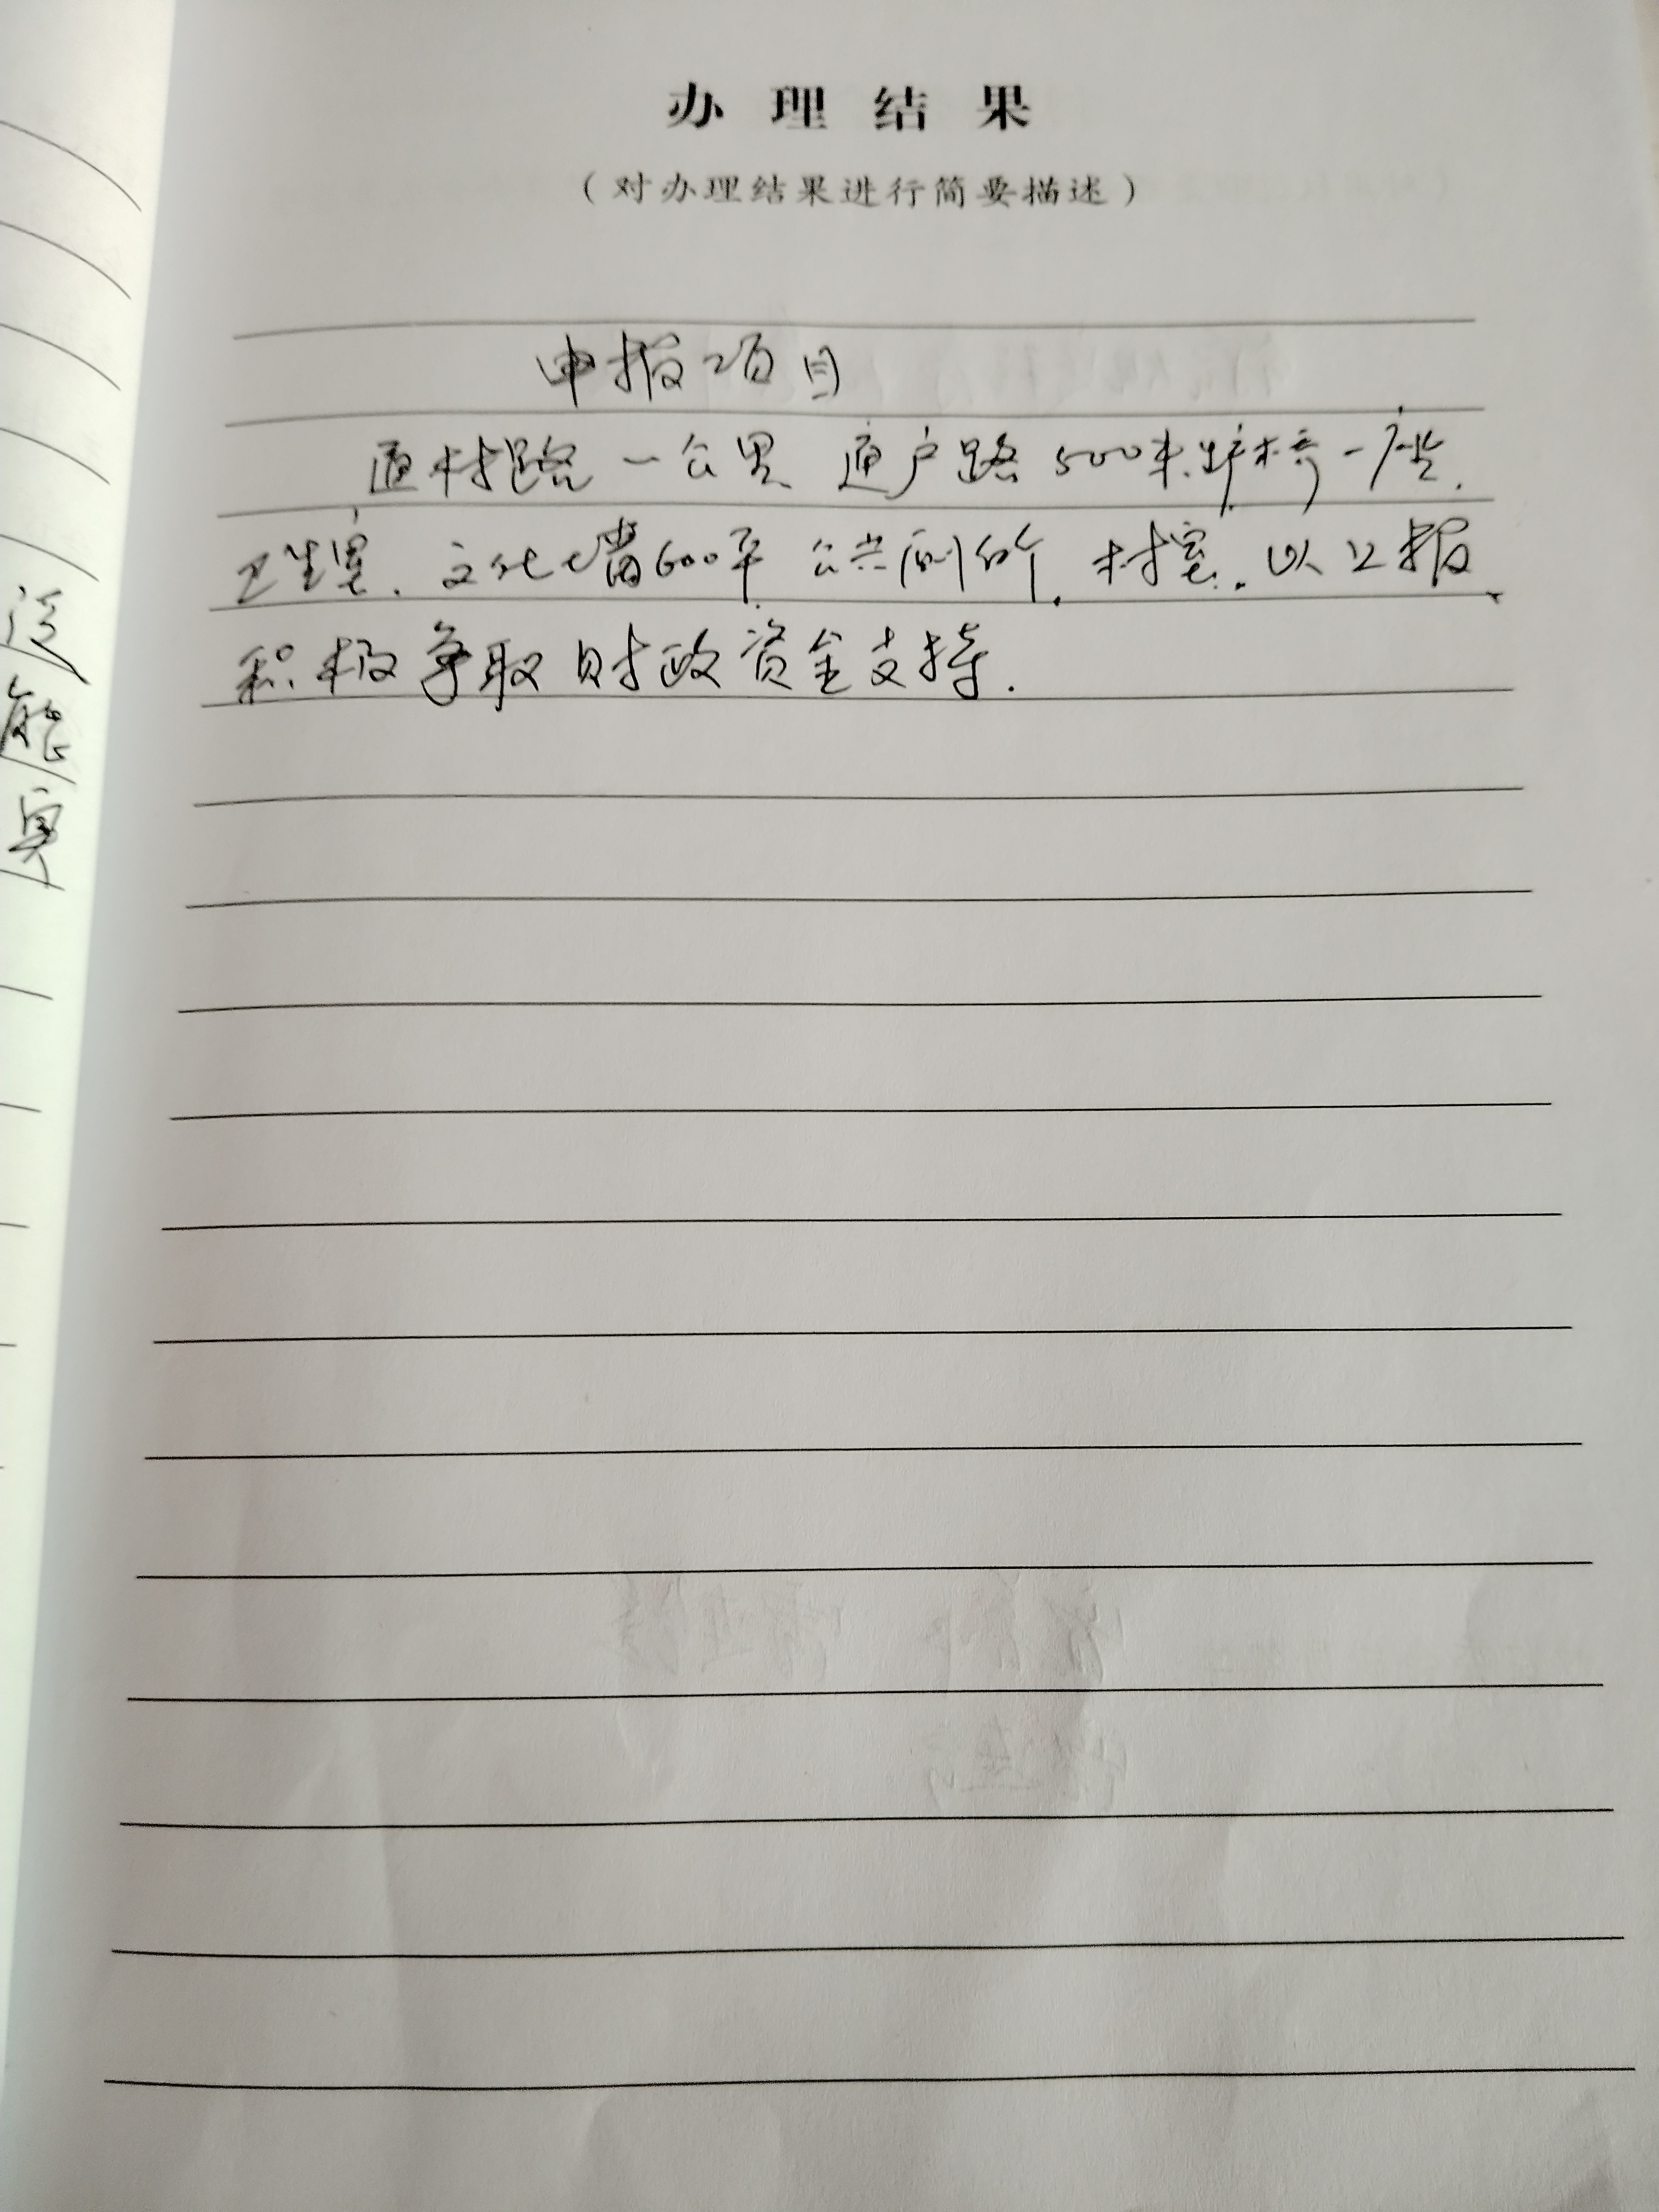 办理结果
（对办理结果进行简要描述）
申报项目
通村路一公里 通户路500米.桥一座.
卫生室.文化墙600平.公共厕所.村室.以上报、
积极争取财政资金支持.
能